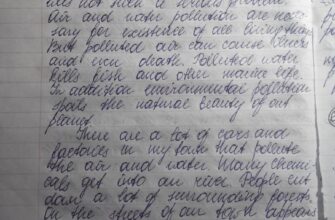 was not such a serious problem.
Air and water pollution are neces-
sary for existence of all living things.
But polluted air can cause illness
and even death. Polluted water
kills fish and other marine life.
In addition environmental pollution
spoils the natural beauty of our
planet.
There are a lot of cars and
factories in my town that pollute
the air and water. Many chemi-
cals get into our river. People cut
down a lot of surrounding forests.
On the streets of our town appears